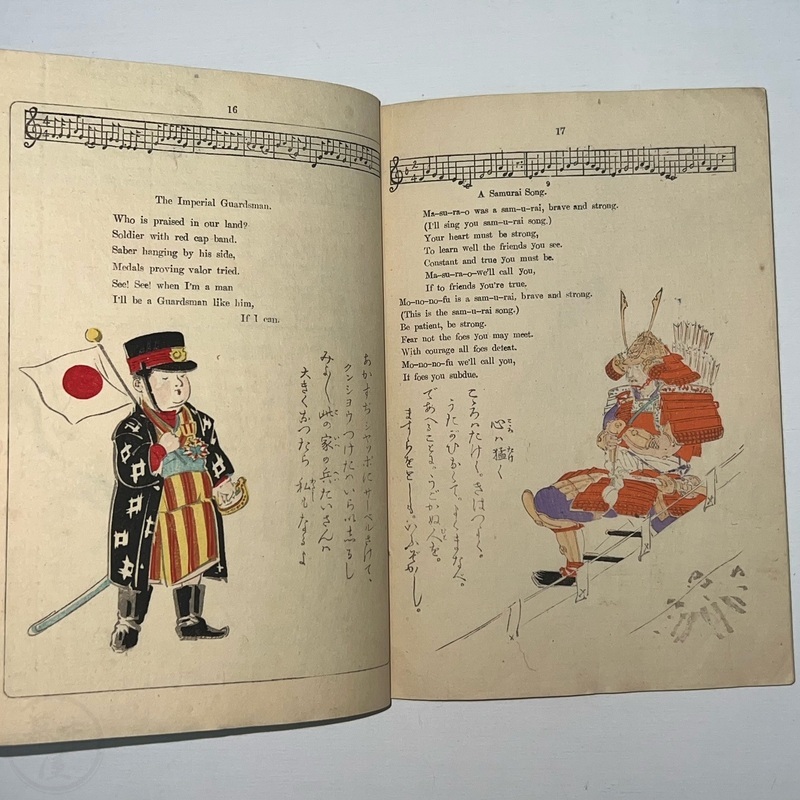 16
The Imperial Guardsman.
Who is praised in our land?
Soldier with red cap band.
Saber hanging by his side,
Medals proving valor tried.
See! See! when I'm a man
I'll be a Guardsman like him,
If I can.
あかすぢシヤツポにサーベルさげて、
クンシヨウつけたかいら
大きくなつたら 私もなるよ
17
9
A Samurai Song.
Ma-su-ra-o was a sam-u-rai, brave and strong.
(I'll sing you sam-u-rai song.)
Your heart must be strong,
To learn well the friends you see.
Constant and true you must be.
Ma-su-ra-o-we'll call you,
If to friends you're true.
Mo-no-no-fu is a sam-u-rai, brave and strong.
(This is the sam-u-rai song.)
Be patient, be strong.
Fear not the foes you may meet.
With courage all foes defeat.
Mo-no-no-fu we'll call you,
It foes you subdue.
心ハ猛く
こゝろハたけく。きはつよく。